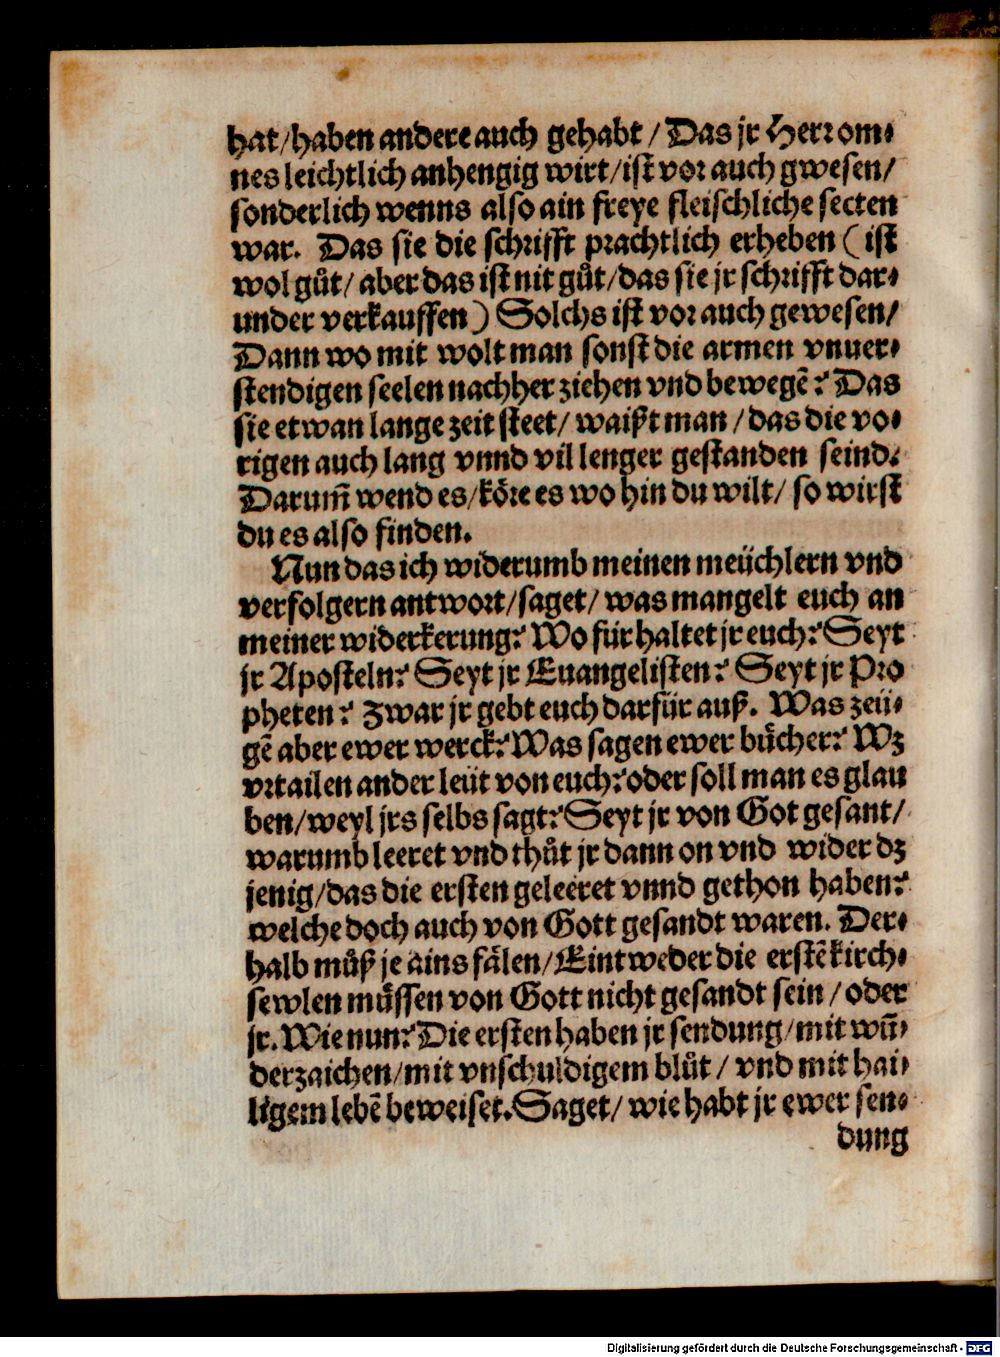 hat/haben andere auch gehabt / Das jr Herr om⸗
nes leichtlich anhengig wirt/ist vor auch gwesen/
sonderlich wenns also ain freye fleischliche secten
war. Das sie die schrifft prachtlich erheben (ist
wol gůt/ aber das ist nit gůt/das sie jr schrifft dar⸗
under verkauffen) Solchs ist vor auch gewesen/
Dann wo mit wolt man sonst die armen vnuer⸗
stendigen seelen nachher ziehen vnd bewegē? Das
sie etwan lange zeit steet/ waißt man /das die vo⸗
rigen auch lang vnnd vil lenger gestanden seind.
Darum̄ wend es/köre es wo hin du wilt/ so wirst
du es also finden.
Nun das ich widerumb meinen meüchlern vnd
verfolgern antwort/saget/ was mangelt euch an
meiner widerkerung? Wo für haltet jr euch? Seyt
jr Aposteln? Seyt jr Euangelisten? Seyt jr Pro
pheten? Zwar jr gebt euch darfür auß. Was zeü⸗
gē aber ewer werck? Was sagen ewer bücher? Wz
vrtailen ander leüt von euch? oder soll man es glau
ben/weyl jrs selbs sagt? Seyt jr von Got gesant/
warumb leeret vnd thůt jr dann on vnd wider dz
jenig/das die ersten geleeret vnnd gethon haben?
welche doch auch von Gott gesandt waren. Der⸗
halb můß je ains fälen/Eintweder die erstē kirch⸗
sewlen müssen von Gott nicht gesandt sein /oder
jr. Wie nun? Die ersten haben jr sendung/mit wū⸗
derzaichen/mit vnschuldigem blůt / vnd mit hai⸗
ligem lebē beweiset. Saget/ wie habt jr ewer sen⸗
dung
Digitalisierung gefördert durch die Deutsche Forschungsgemeinschaft - DFG